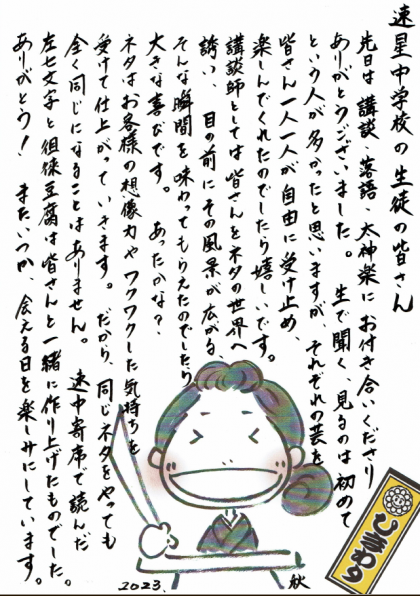 速星中学校の生徒の皆さん
先日は講談、落語、太神楽にお付き合いくださり
ありがとうございました。生で聞く、見るのは初めて
という人が多かったと思いますが、それぞれの芸を
皆さん一人一人が自由に受け止め、
楽しんでくれたのでしたら嬉しいです。
講談師としては皆さんをネタの世界へ
誘い、目の前にその風景が広がる、
そんな瞬間を味わってもらえたのでしたら
大きな喜びです。あったかな？
ネタはお客様の想像力やワクワクした気持ちを
受けて仕上がっていきます。だから、同じネタをやっても
全く同じになることはありません。速中寄席で読んだ
左七文字と徂徠豆腐は皆さんと一緒に作り上げたものでした。
ありがとう！またいつか、会える日を楽しみにしています。
2023.秋
ひまわり